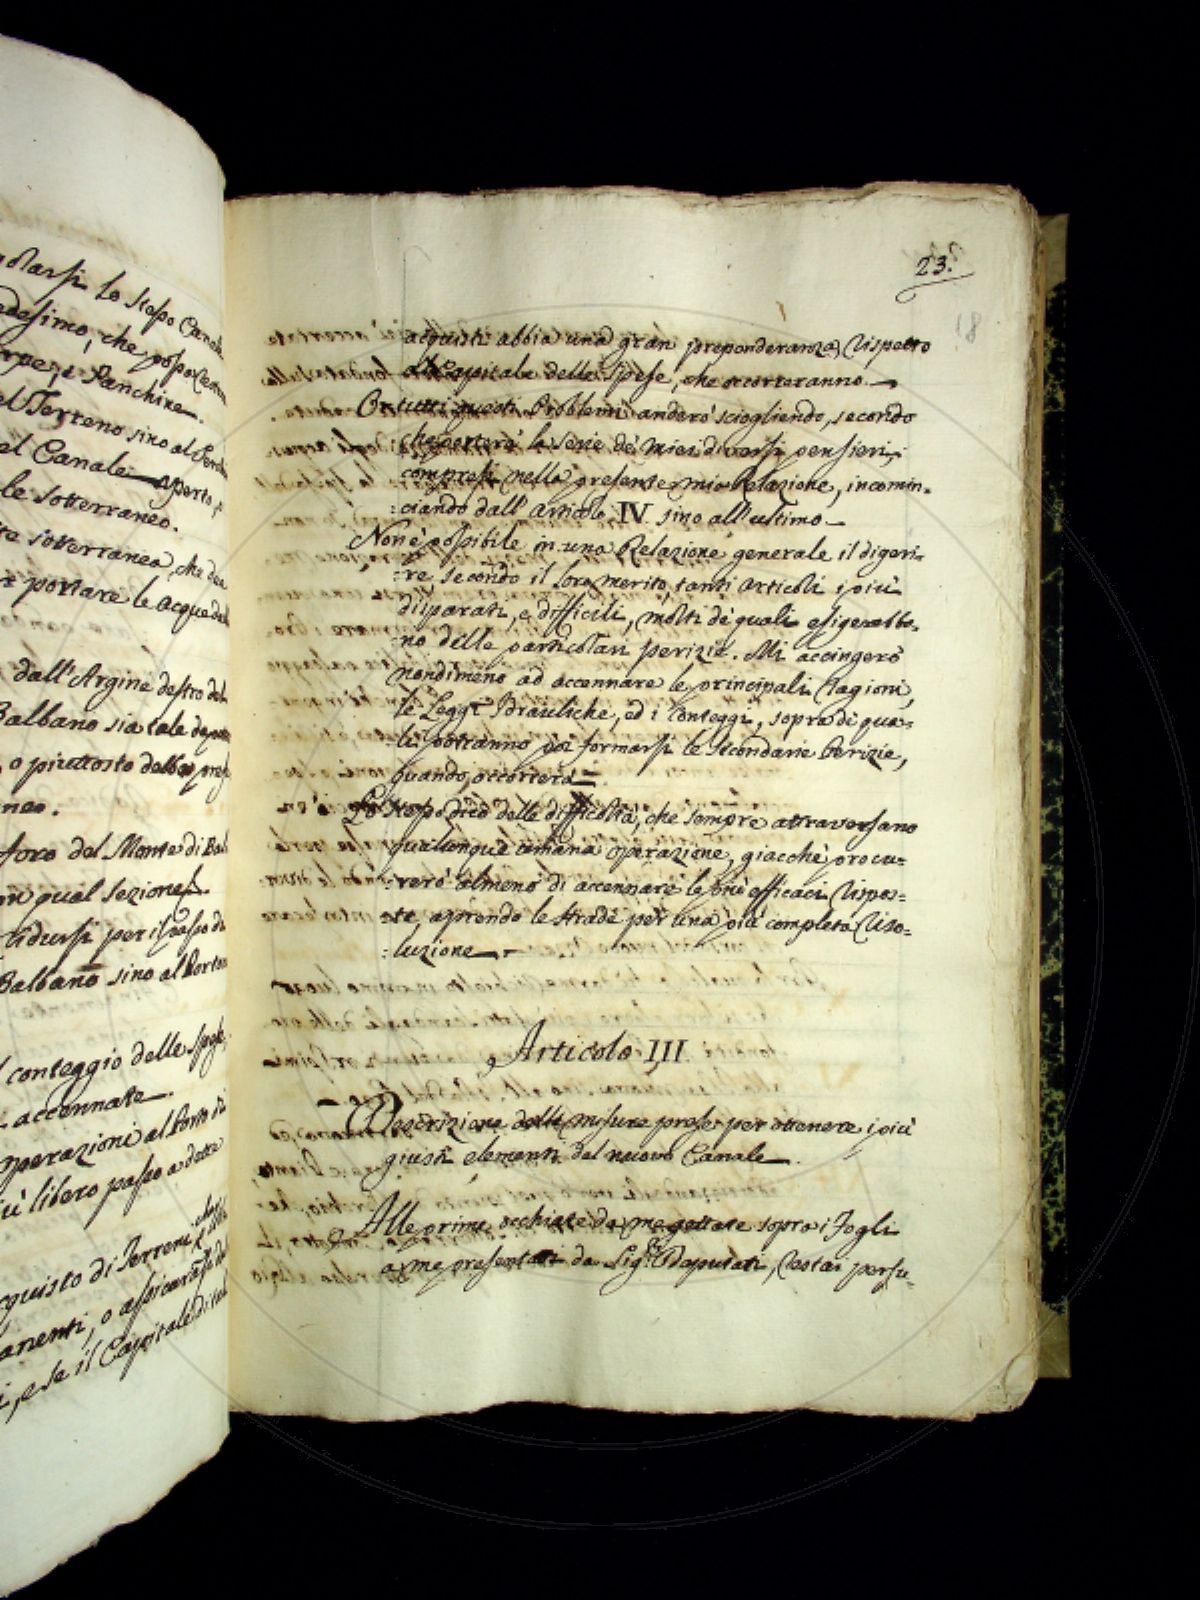 olarsi lo stesso Canale
edesimo, che possa
Banchine.
el Terreno sino al
el Canale aperto, e
le sotterraneo.
te sotterranea, che dee
e portare le acque dal
dall'Argine destro del
Balbano sia tale da
o piuttosto
neo.
foro del Monte di Bal
n qual sezione
ridursi per il
Balbano sino al Porto
l conteggio delle spese
accennate.
operazioni al Porto di
iù libero passo a dette
cquisto di Terreni che
anenti, o assicurasse
i, e se il Capitale di tal
23.
18
acquisti abbia una gran preponderanza rispetto
al Capitale delle spese, che occorreranno.
Or tutti questi Problemi anderò sciogliendo, secondo
che porterà la serie de' miei diversi pensieri,
compresi nella presente mia Relazione, incomin=
=ciando dall'articolo IV. sino all'ultimo
Non è possibile in una Relazione generale il digeri=
=re secondo il loro merito tanti articoli i più
disparati, e difficili, molti de' quali esigerebbe=
=no delle particolari perizie. Mi accingerò
nondimeno ad accennare le principali ragioni,
le Leggi Idrauliche, ed i conteggi, sopra di qua=
=li potranno poi formarsi le secondarie Perizie,
quando occorrerà
Lo stesso dico delle difficoltà, che sempre attraversano
qualunque umana operazione, giacchè procu=
=rerò almeno di accennare le più efficaci rispos=
=te aprendo le strade per una più completa riso=
=luzione
Articolo III
Descrizione delle misure prese per ottenere i più
giusti elementi del nuovo Canale.
Alle prime occhiate da me gettate sopra i Fogli
a me presentati da Sig.ri Deputati, restai persu=